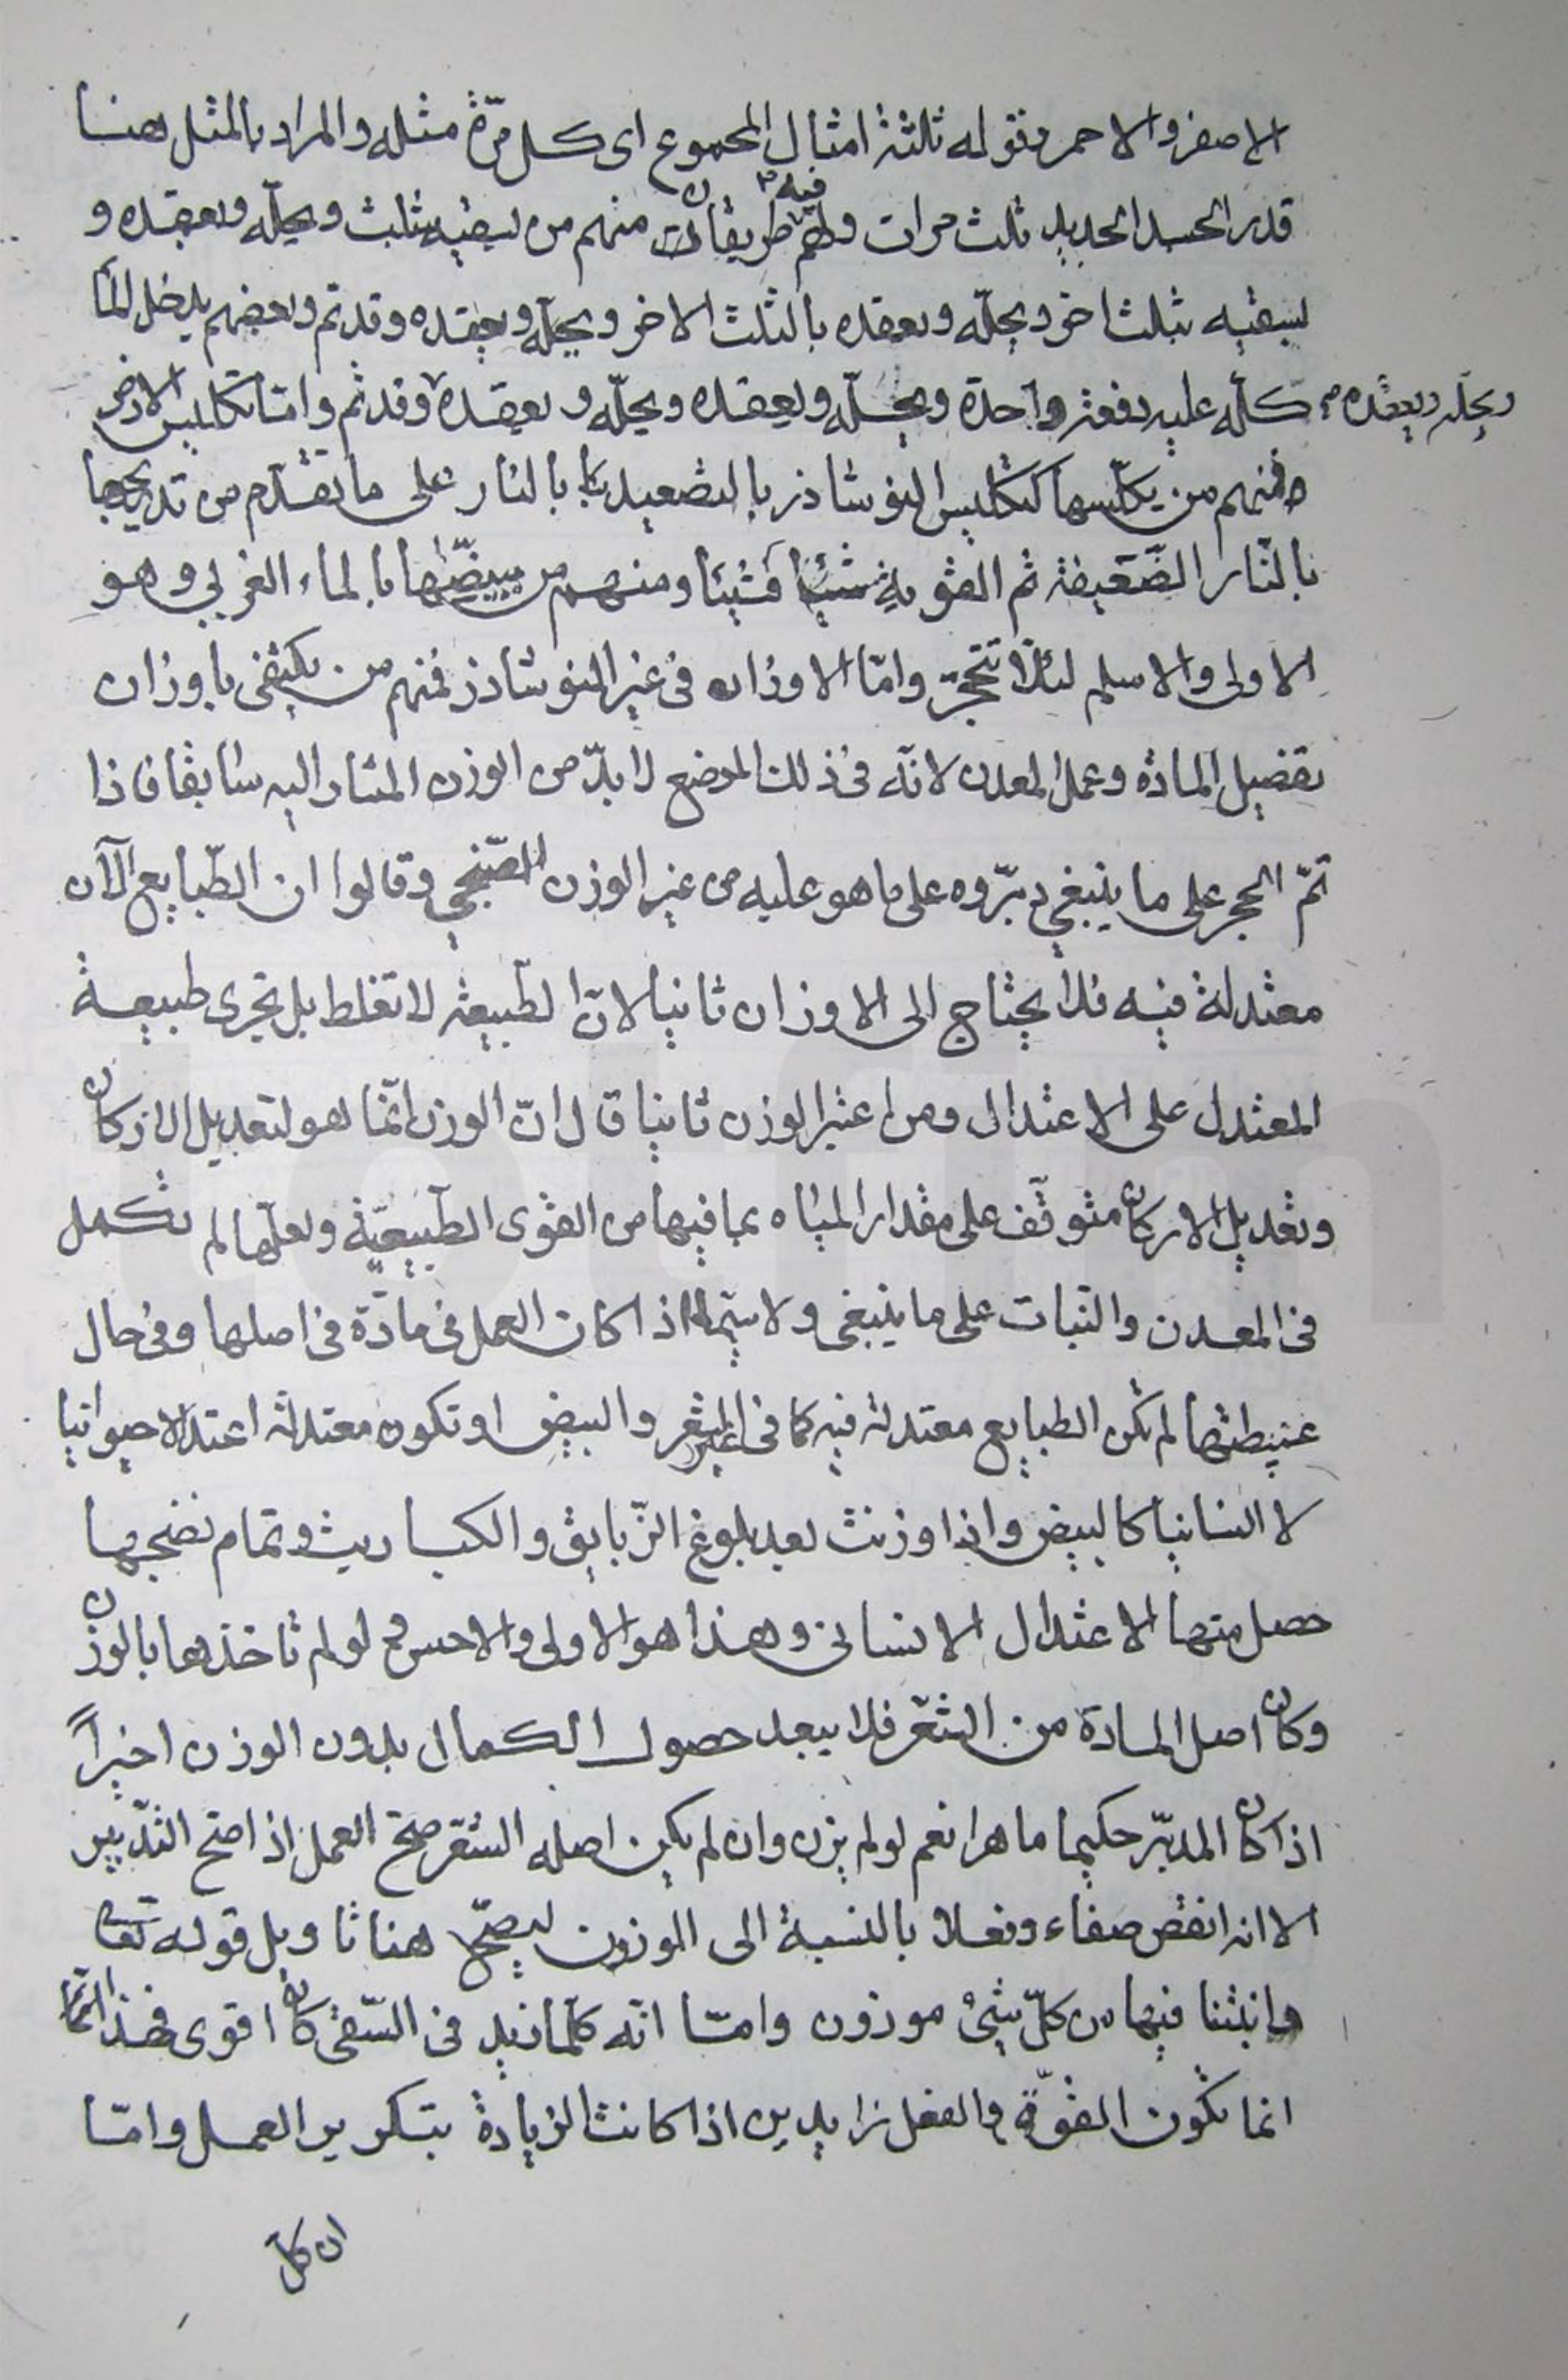 الاصفر والاحمر وقوله ثلثة امثال المجموع اى كل مرّة مثله والمراد بالمثل هنا
قدر الجسد الجديد ثلث مرات ولهم فيه طريقان منهم من يسقيه بثلث ويحلّه ويعقده و
يسقيه بثلث اخر ويحلّه ويعقده بالثلث الاخر ويحلّه ويعقده وقد تم وبعضهم يدخل الماء
كلّه عليه دفعة واحدة ويحلّه ويعقده ويحلّه ويعقده ويحلّه ويعقده وقد تم وامّا تكليس الارض
فمنهم من يكلّسها كتكليس النوشاذر بالتصعيد بالنار على ما تقدّم من تدريجها
بالنّار الضّعيفة ثم القوية شيئا فشيئا ومنهم من يبيضّها بالماء الغربي وهو
الاولى والاسلم لئلّا تتحجّر وامّا الاوزان فى غير النوشاذر فمنهم من يكتفى باوزان
تفصيل المادة وعمل المعدن لانّه فى ذلك الموضع لا بدّ من الوزن المشار اليه سابقا فاذا
تمّ الحجر على ما ينبغي دبّروه على ما هو عليه من غير الوزن الصّنجي وقالوا ان الطّبايع الآن
معتدلة فيه فلا يحتاج الى الاوزان ثانيا لانّ الطّبيعة لا تغلط بل تجرى طبيعة
المعتدل على الاعتدال ومن اعتبر الوزن ثانيا قال انّ الوزن انّما هو لتعديل الاركان
وتعديل الاركان متوقّف على مقدار المياه بما فيها من القوى الطّبيعيّة ولعلّها لم تكمل
فى المعدن والنّبات على ما ينبغى ولا سيّما اذا كان العمل فى مادّة فى اصلها وفى حال
عنيطتها لم تكن الطبايع معتدلة فيه كما فى غير الشعر والبيض او تكون معتدلة اعتدالا حيوانيا
لا انسانيا كالبيض واذا وزنت بعد بلوغ الزّبايق والكباريت وتمام نضجها
حصل منها الاعتدال الانسانى وهذا هو الاولى والاحسن نعم لو لم تاخذها بالوزن
وكان اصل المادة من الشعر فلا يبعد حصول الكمال بدون الوزن اخيراً
اذا كان المدبّر حكيما ماهرا نعم لو لم يزن وان لم يكن اصله الشعر صحّ العمل اذا صحّ التّدبير
الا انه انقص صفاء وفعلا بالنسبة الى الموزون ليصحّ هنا تاويل قوله تعا
وانبتنا فيها من كلّ شئ موزون وامّا انّه كلما زيد فى السّقى كان اقوى فهذا
انما تكون القوّة والفعل زايدين اذا كانت الزيادة بتكرير العمل وامّا
ان كل
ويحلّه ويعقده